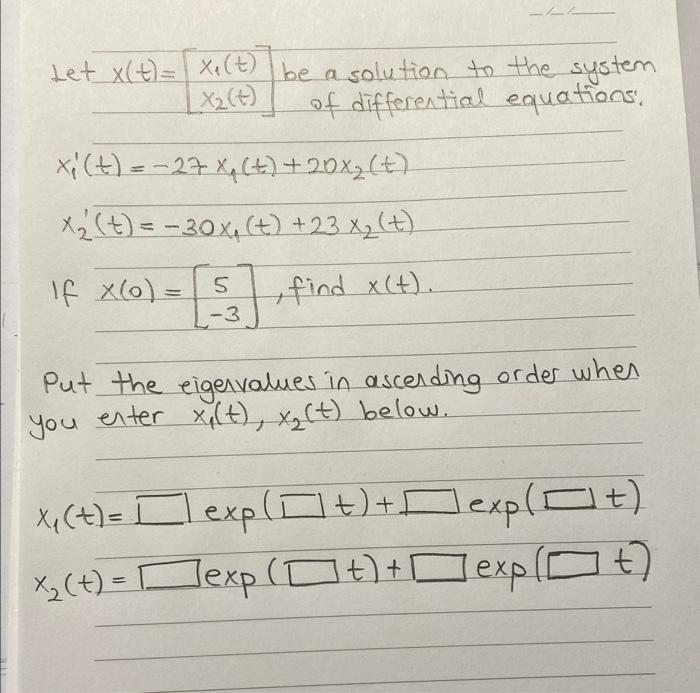 Let x(t) = [x₁(t) x₂(t)] be a solution to the system
of differential equations.
x₁'(t) = -27 x₁(t) + 20x₂(t)
x₂'(t) = -30x₁(t) + 23 x₂(t)
If x(0) = [5 -3], find x(t).
Put the eigenvalues in ascending order when
you enter x₁(t), x₂(t) below.
x₁(t) = □ exp(□t) + □ exp(□t)
x₂(t) = □ exp(□t) + □ exp(□t)